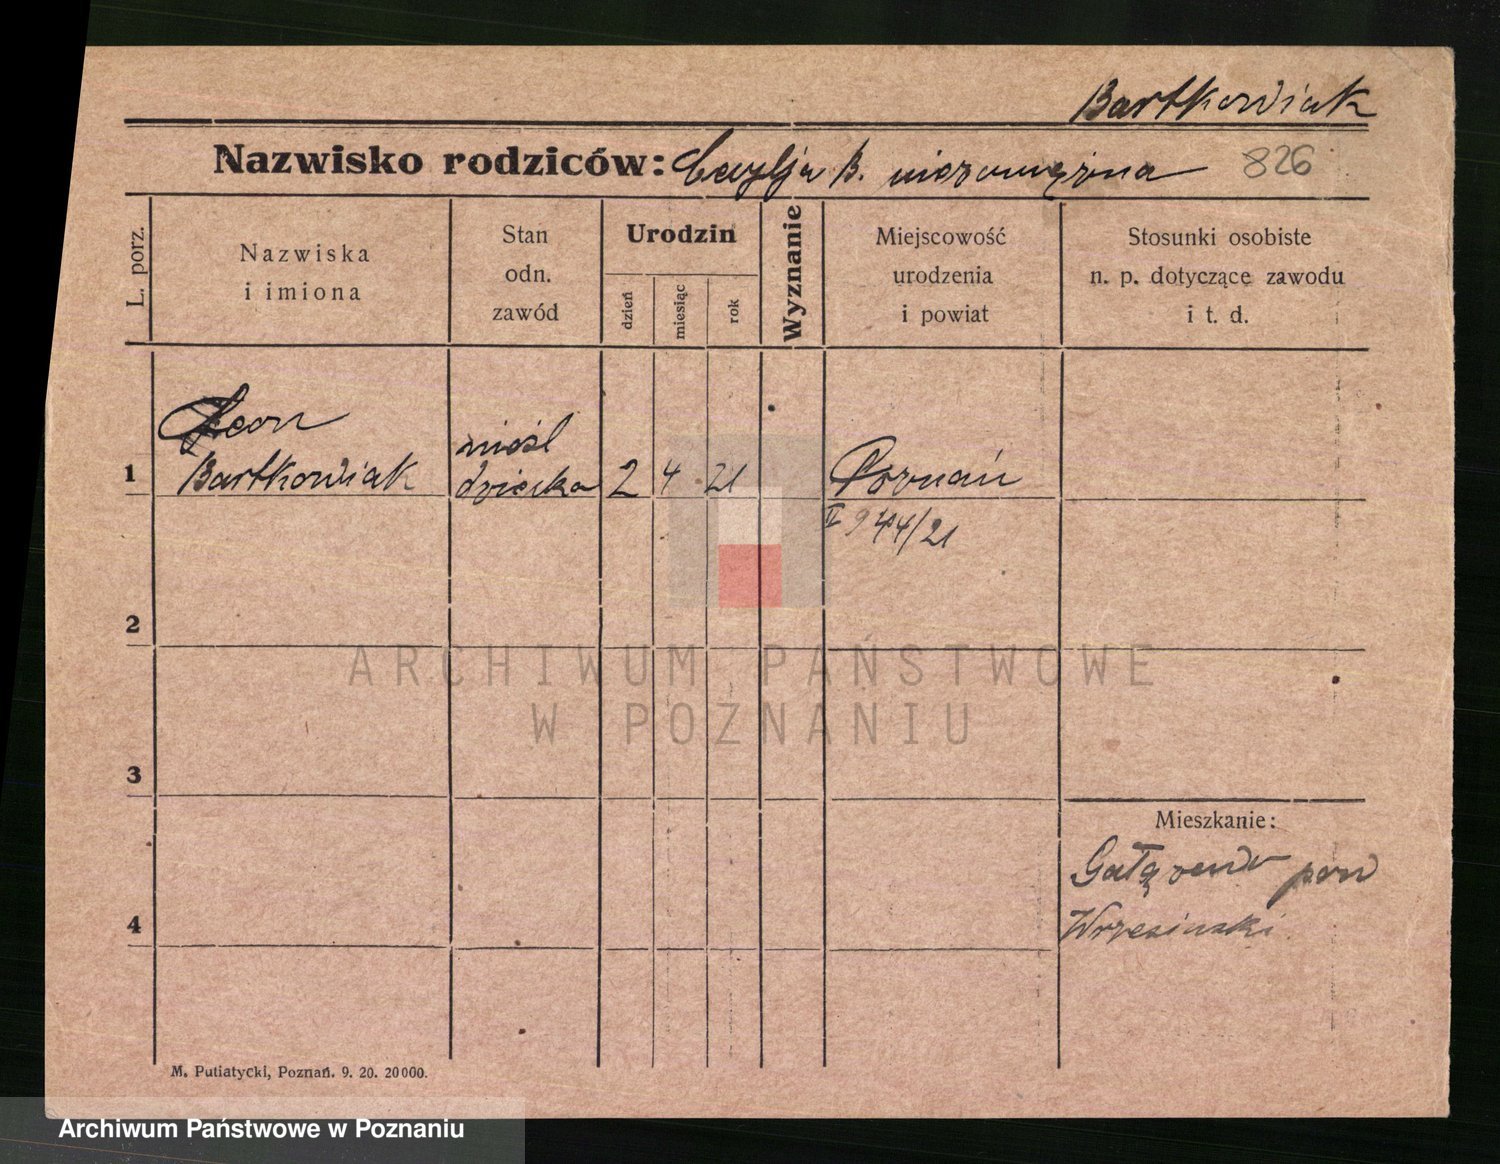 Bartkowiak
Nazwisko rodziców: Cecylja B. niezamężna 826
L. porz.
Nazwiska
i imiona
Stan
odn.
zawód
Urodzin
dzień
miesiąc
rok
Wyznanie
Miejscowość
urodzenia
i powiat
Stosunki osobiste
n. p. dotyczące zawodu
i t. d.
Leon
1 Bartkowiak
dziecko 2 4 21 Poznań
II 944/21
2
3
4
Mieszkanie:
pow
Wrzesiński
M. Putiatycki, Poznań. 9. 20. 20000.
ARCHIWUM PAŃSTWOWE
W POZNANIU
Archiwum Państwowe w Poznaniu